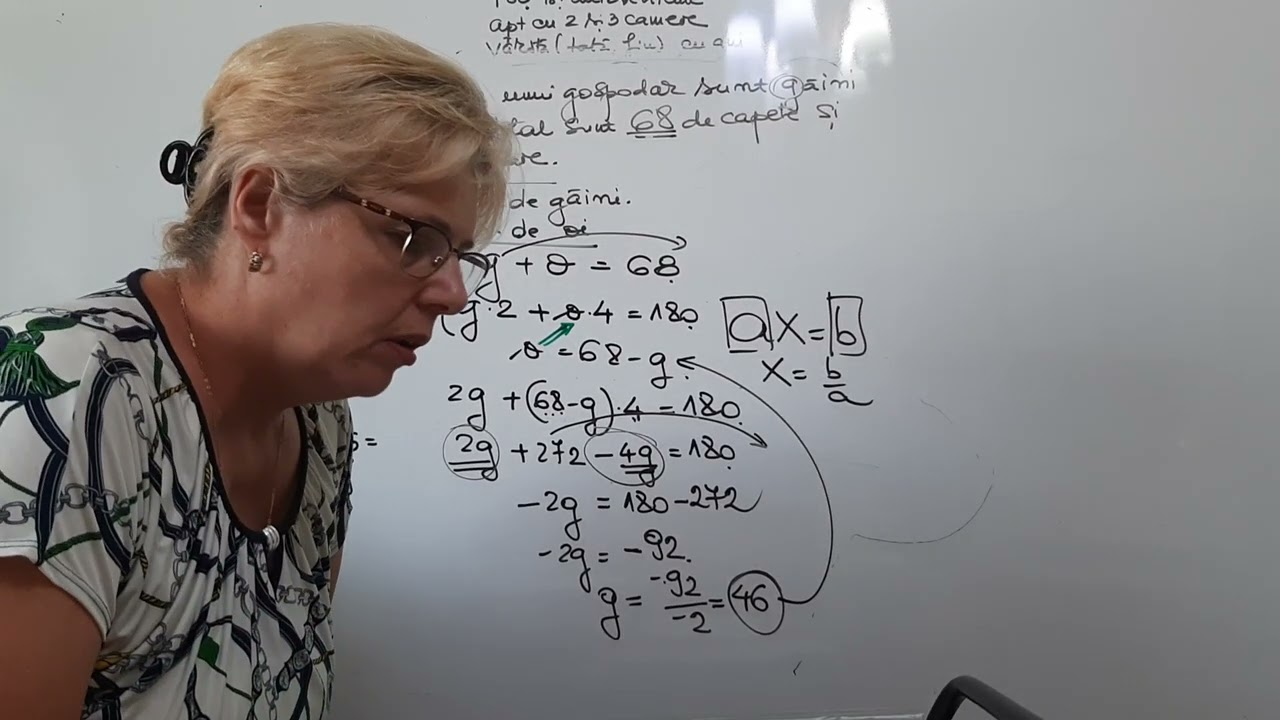 apt cu 2 și 3 camere
Vârstă (tată, fiu) cu ani
unui gospodar sunt găini
sunt 68 de capete și
de găini.
de oi
g + o = 68
(g·2 + o·4 = 180
o = 68 - g
2g + (68-g)·4 = 180
2g + 272 - 4g = 180
-2g = 180 - 272
-2g = -92
g = -92/-2 = 46
a x = b
x = b/a